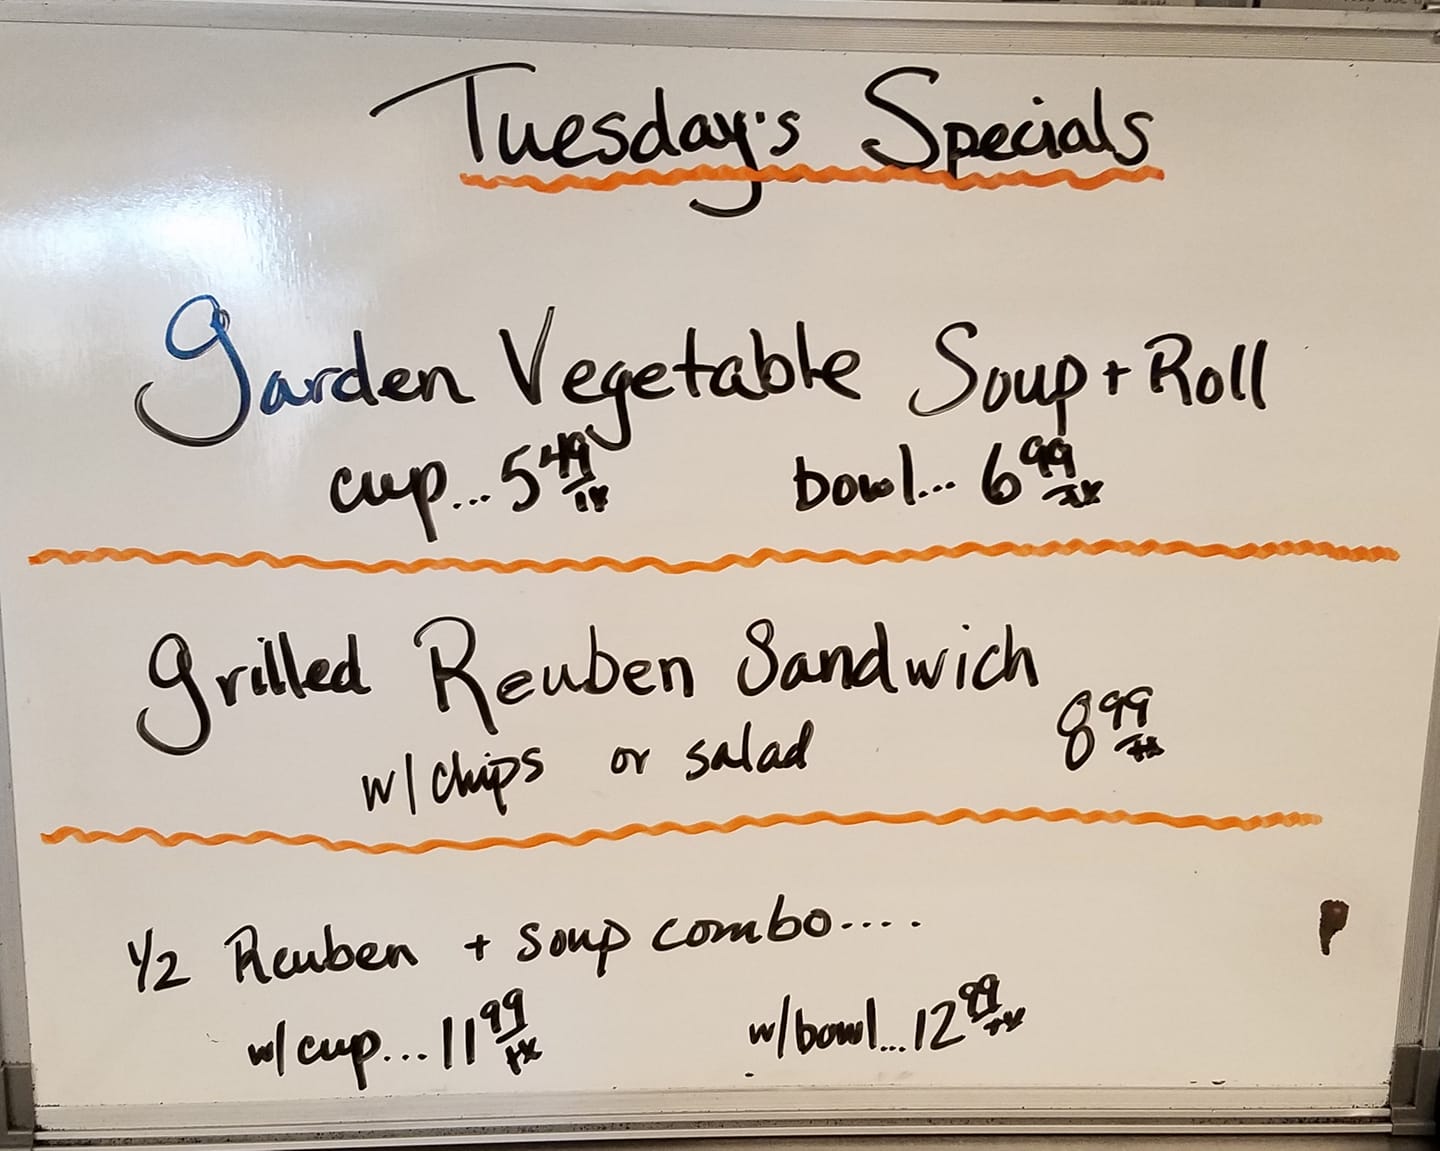 Tuesday's Specials
Garden Vegetable Soup + Roll
cup... 5 49 tx bowl... 6 99 tx
Grilled Reuben Sandwich
w/ chips or salad 8 99 tx
1/2 Reuben + soup combo....
w/ cup... 11 99 tx w/ bowl... 12 99 tx